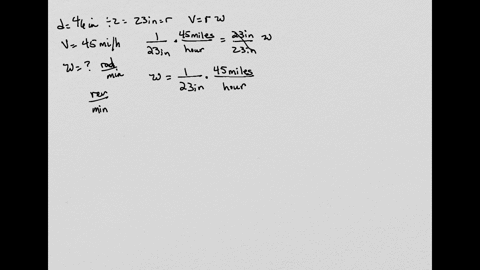 d = 46 in ÷ 2 = 23 in = r   V = r ω
V = 45 mi/h   1/23in · 45miles/hour = 23in/23in ω
ω = ? rad/min   ω = 1/23in · 45miles/hour
rev/min